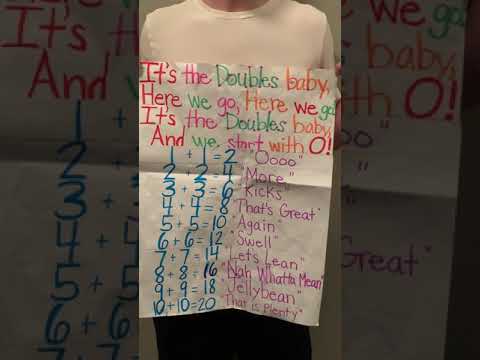 It's the Doubles baby,
Here we go, Here we go!
It's the Doubles baby,
And we, start with O!
1 + 1 = 2 "Oooo"
2 + 2 = 4 "More"
3 + 3 = 6 "Kicks"
4 + 4 = 8 "That's Great"
5 + 5 = 10 "Again"
6 + 6 = 12 "Swell"
7 + 7 = 14 "Lets Lean"
8 + 8 = 16 "Nah Whatta Mean"
9 + 9 = 18 "Jellybean"
10 + 10 = 20 "That is Plenty"